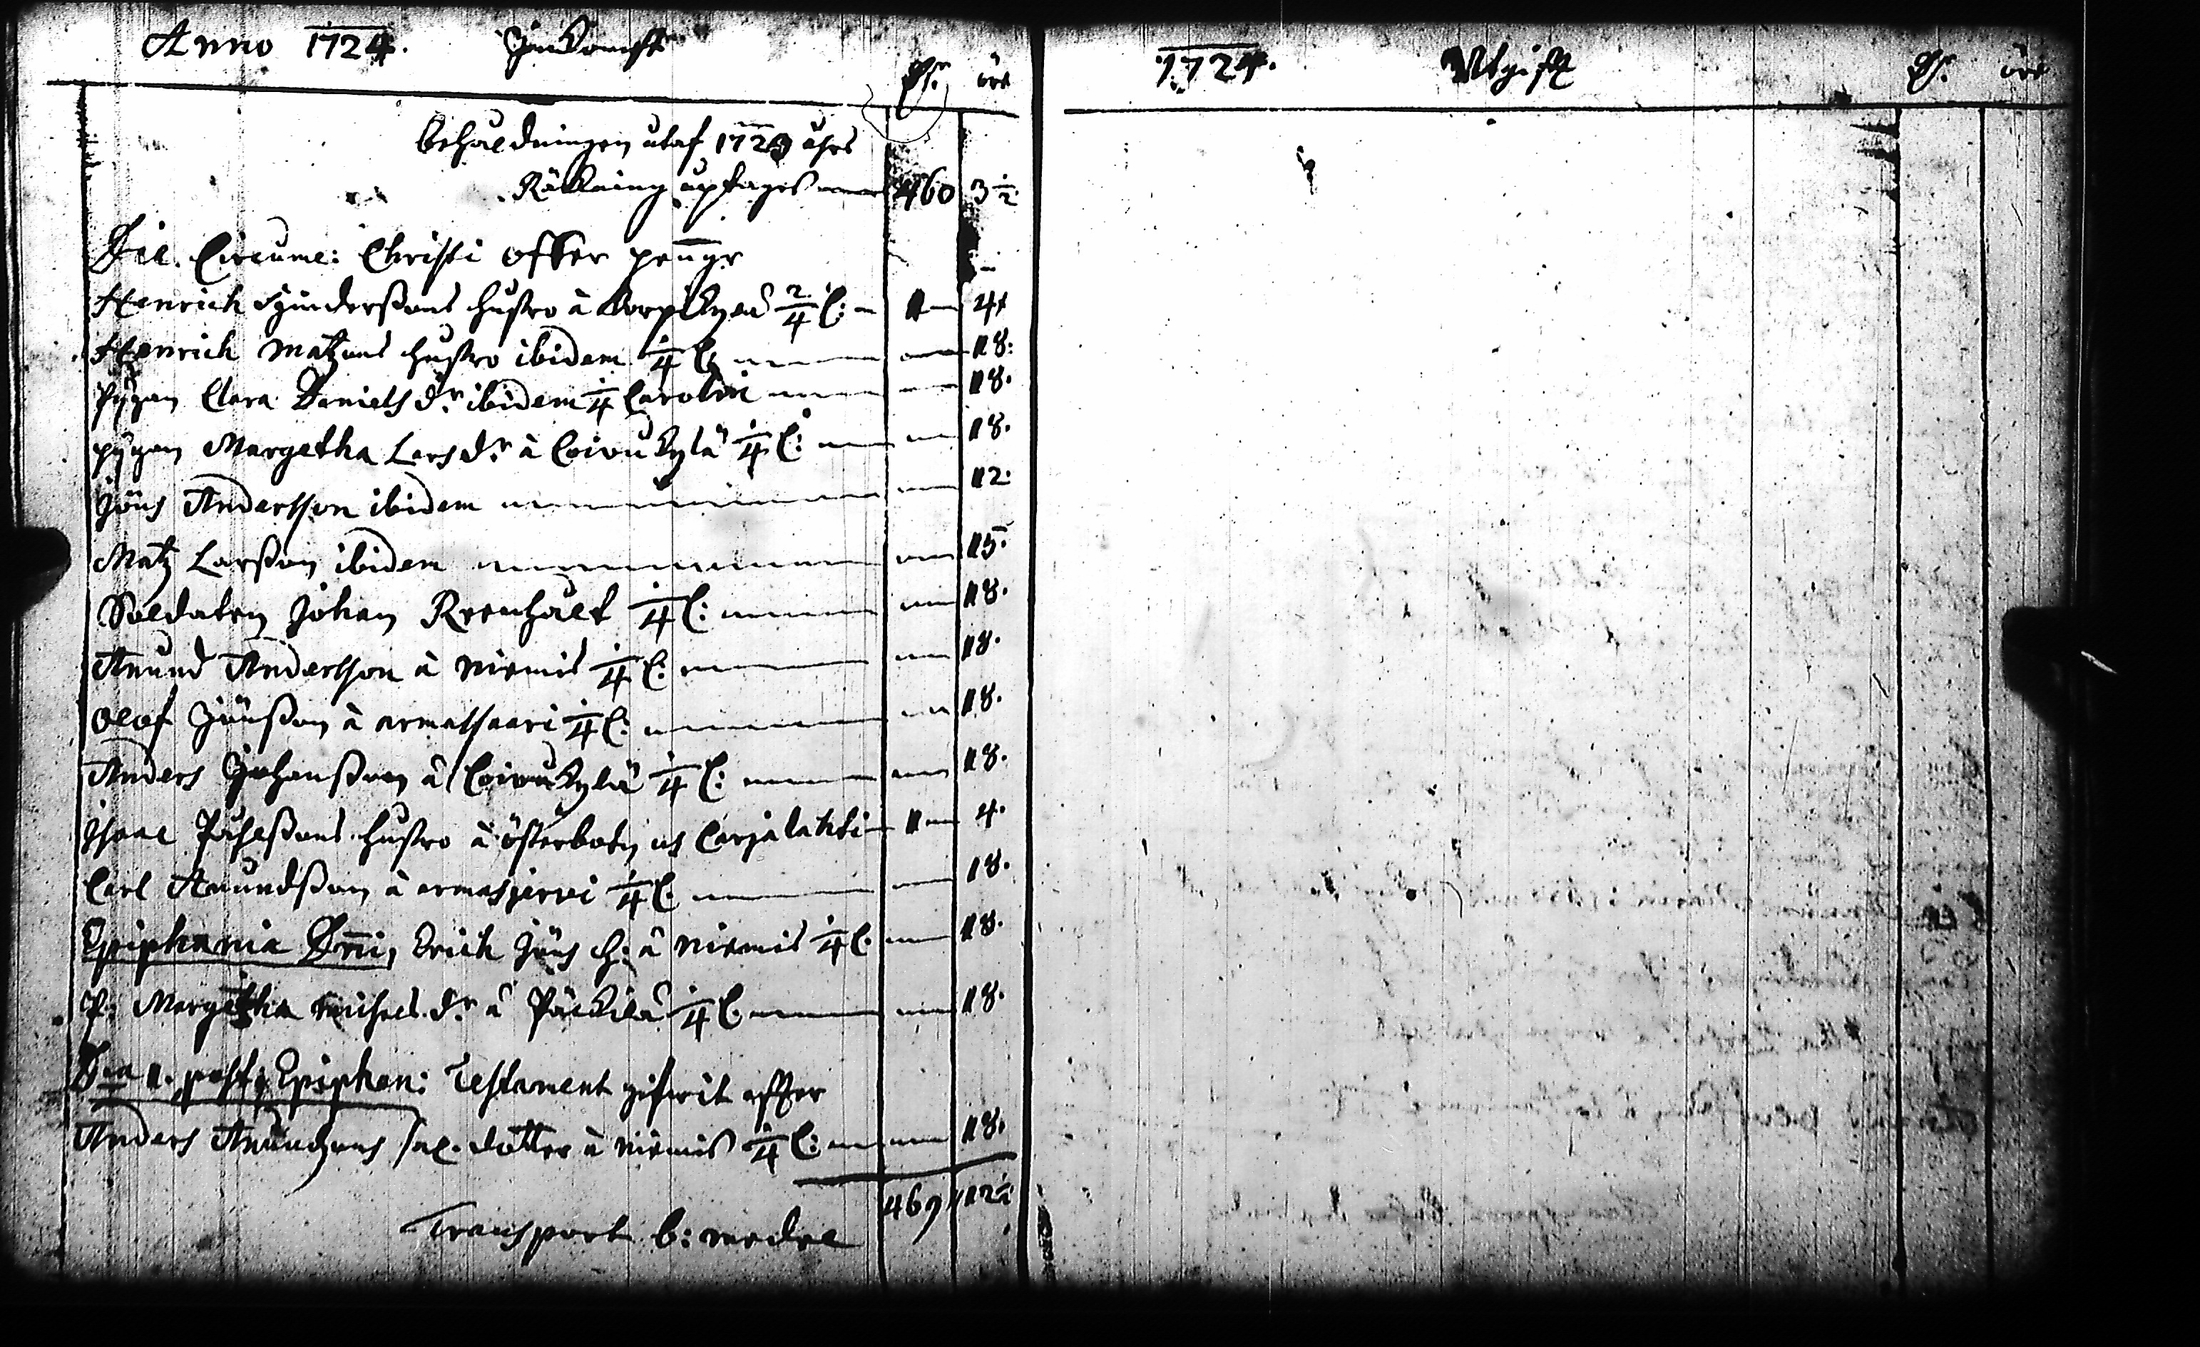 Anno 1724. Inkomst
Dr. öre
behåldningen utaf 1723 åhrs
Räkning uptages 460 3 1/2
Die. Circume: Christi offer pengr
Henrich Hinderßons hustro à Korpikylä 2/4 C: 1 4
Henrich Matzons hustro ibidem 1/4 C 18:
pijgan Clara Daniels dr ibidem 1/4 Carolin 18.
pijgan Margetha Lars dr à Coivukylä 1/4 C: 18.
Jöns Andersson ibidem 12:
Matz Larßon ibidem 15.
Soldaten Johan Reenhult 1/4 C: 18.
Anund Andersson à Niemis 1/4 C: 18.
Olof Jönßon à armassaari 1/4 C: 18.
Anders Johanßon à Coivukylä 1/4 C: 18.
Isaac Påhlßons hustro à österbotn us Carjalahti 1 4.
Carl Anundßon à armasjervi 1/4 C. 18.
Epiphania Dnni, Erich Jöns h: à Niemis 1/4 C. 18.
P: Margetha Michels dr à Päckilä 1/4 C. 18.
Dca 1. post Epiphan: Testament gifwit effter
Anders Anundzons sal. dotter à Niemis 1/4 C: 18.
469 12 1/2
Transport b: wedre
1724. Utgift
Dr. öre